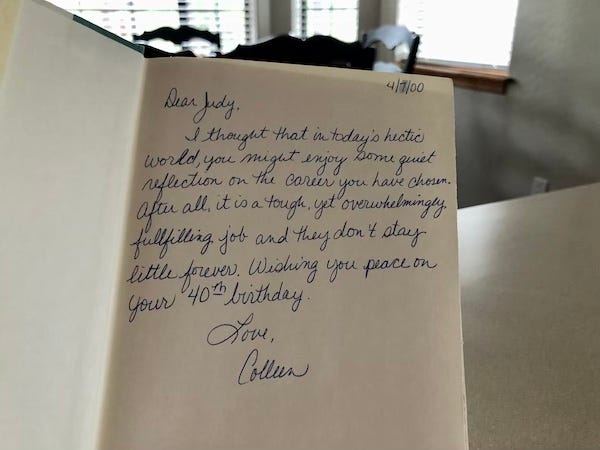 4/7/00
Dear Judy,
I thought that in today's hectic
world, you might enjoy some quiet
reflection on the career you have chosen.
After all, it is a tough, yet overwhelmingly
fullfilling job and they don't stay
little forever. Wishing you peace on
your 40th birthday.
Love,
Colleen